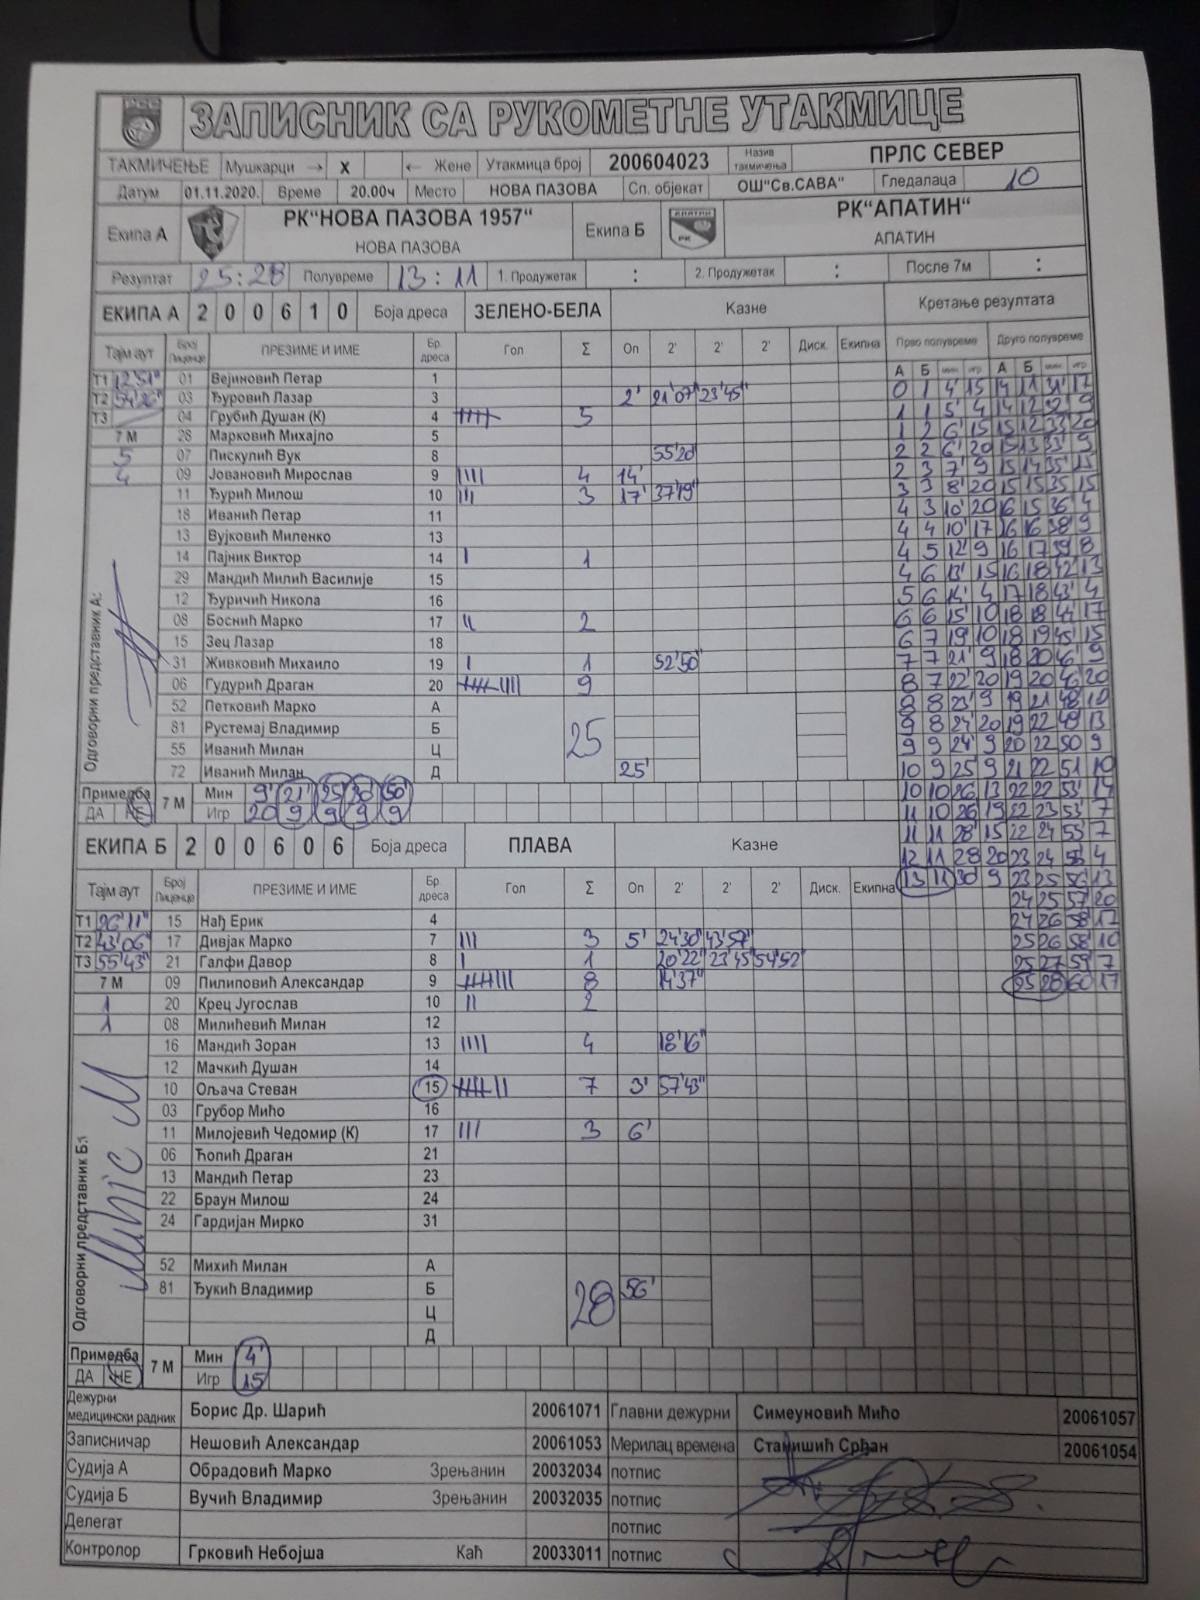 ЗАПИСНИК СА РУКОМЕТНЕ УТАКМИЦЕ
ТАКМИЧЕЊЕ Мушкарци → X ← Жене Утакмица број 200604023 Назив такмичења ПРЛС СЕВЕР
Датум 01.11.2020. Време 20.00ч Место НОВА ПАЗОВА Сп. објекат ОШ"Св.САВА" Гледалаца 10
Екипа А РК"НОВА ПАЗОВА 1957" НОВА ПАЗОВА Екипа Б РК"АПАТИН" АПАТИН
Резултат 25:28 Полувреме 13:11 1. Продужетак : 2. Продужетак : После 7м :
ЕКИПА А 2 0 0 6 1 0 Боја дреса ЗЕЛЕНО-БЕЛА Казне Кретање резултата
Тајм аут Број Лиценце ПРЕЗИМЕ И ИМЕ Бр. дреса Гол Σ Оп 2' 2' 2' Диск. Екипна Прво полувреме Друго полувреме
А Б мин игр А Б мин игр
Т1 12'51" 01 Вејиновић Петар 1
Т2 54'26" 03 Ђуровић Лазар 3 2' 21'07" 23'45"
Т3 04 Грубић Душан (К) 4 5
7 М 28 Марковић Михајло 5
5 07 Пискулић Вук 8 55'20"
4 09 Јовановић Мирослав 9 IIII 4 14'
11 Ђурић Милош 10 III 3 17' 37'19"
18 Иванић Петар 11
13 Вујковић Миленко 13
14 Пајник Виктор 14 I 1
29 Мандић Милић Василије 15
12 Ђуричић Никола 16
08 Боснић Марко 17 II 2
15 Зец Лазар 18
31 Живковић Михаило 19 I 1 52'50"
06 Гудурић Драган 20 9
52 Петковић Марко А
81 Рустемај Владимир Б 25
55 Иванић Милан Ц
72 Иванић Милан Д 25'
Одговорни представник А:
Примедба ДА НЕ 7 М Мин 9' 21' 25' 30' 50'
Игр 20 9 9 9 9
0 1 4' 15 14 11 31' 17
1 1 5' 4 14 12 32' 9
1 2 6' 15 15 12 33' 20
2 2 6' 20 15 13 33' 9
2 3 7' 9 15 14 35' 15
3 3 8' 20 15 15 35' 15
4 3 10' 20 16 15 36' 4
4 4 10' 17 16 16 38' 9
4 5 12' 9 16 17 39' 8
4 6 13' 15 16 18 42' 13
5 6 14' 4 17 18 43' 4
6 6 15' 10 18 18 44' 17
6 7 19' 10 18 19 45' 15
7 7 21' 9 18 20 46' 9
8 7 22' 20 19 20 46' 20
8 8 23' 9 19 21 48' 10
9 8 24' 20 19 22 49' 13
9 9 24' 9 20 22 50 9
10 9 25 9 21 22 51 10
10 10 26 13 22 22 53' 14
11 10 26 19 22 23 53' 7
11 11 28' 15 22 24 55' 7
12 11 28 20 23 24 56' 4
13 11 30 9 23 25 56' 13
24 25 57' 20
24 26 58' 17
25 26 58' 10
25 27 59' 7
25 28 60 17
ЕКИПА Б 2 0 0 6 0 6 Боја дреса ПЛАВА Казне
Тајм аут Број Лиценце ПРЕЗИМЕ И ИМЕ Бр. дреса Гол Σ Оп 2' 2' 2' Диск. Екипна
Т1 26'11" 15 Нађ Ерик 4
Т2 43'06" 17 Дивјак Марко 7 III 3 5' 24'30" 43'57"
Т3 55'43" 21 Галфи Давор 8 I 1 20'22" 23'45" 54'52"
7 М 09 Пилиповић Александар 9 8 14'37"
1 20 Крец Југослав 10 II 2
1 08 Милићевић Милан 12
16 Мандић Зоран 13 IIII 4 18'16"
12 Мачкић Душан 14
10 Ољача Стеван 15 7 3' 57'43"
03 Грубор Мићо 16
11 Милојевић Чедомир (К) 17 III 3 6'
06 Ћопић Драган 21
13 Мандић Петар 23
22 Браун Милош 24
24 Гардијан Мирко 31
52 Михић Милан А
81 Ђукић Владимир Б 28 56'
Ц
Д
Одговорни представник Б:
Примедба ДА НЕ 7 М Мин 4'
Игр 15
Дежурни медицински радник Борис Др. Шарић 20061071 Главни дежурни Симеуновић Мићо 20061057
Записничар Нешовић Александар 20061053 Мерилац времена Станишић Срђан 20061054
Судија А Обрадовић Марко Зрењанин 20032034 потпис
Судија Б Вучић Владимир Зрењанин 20032035 потпис
Делегат потпис
Контролор Грковић Небојша Каћ 20033011 потпис